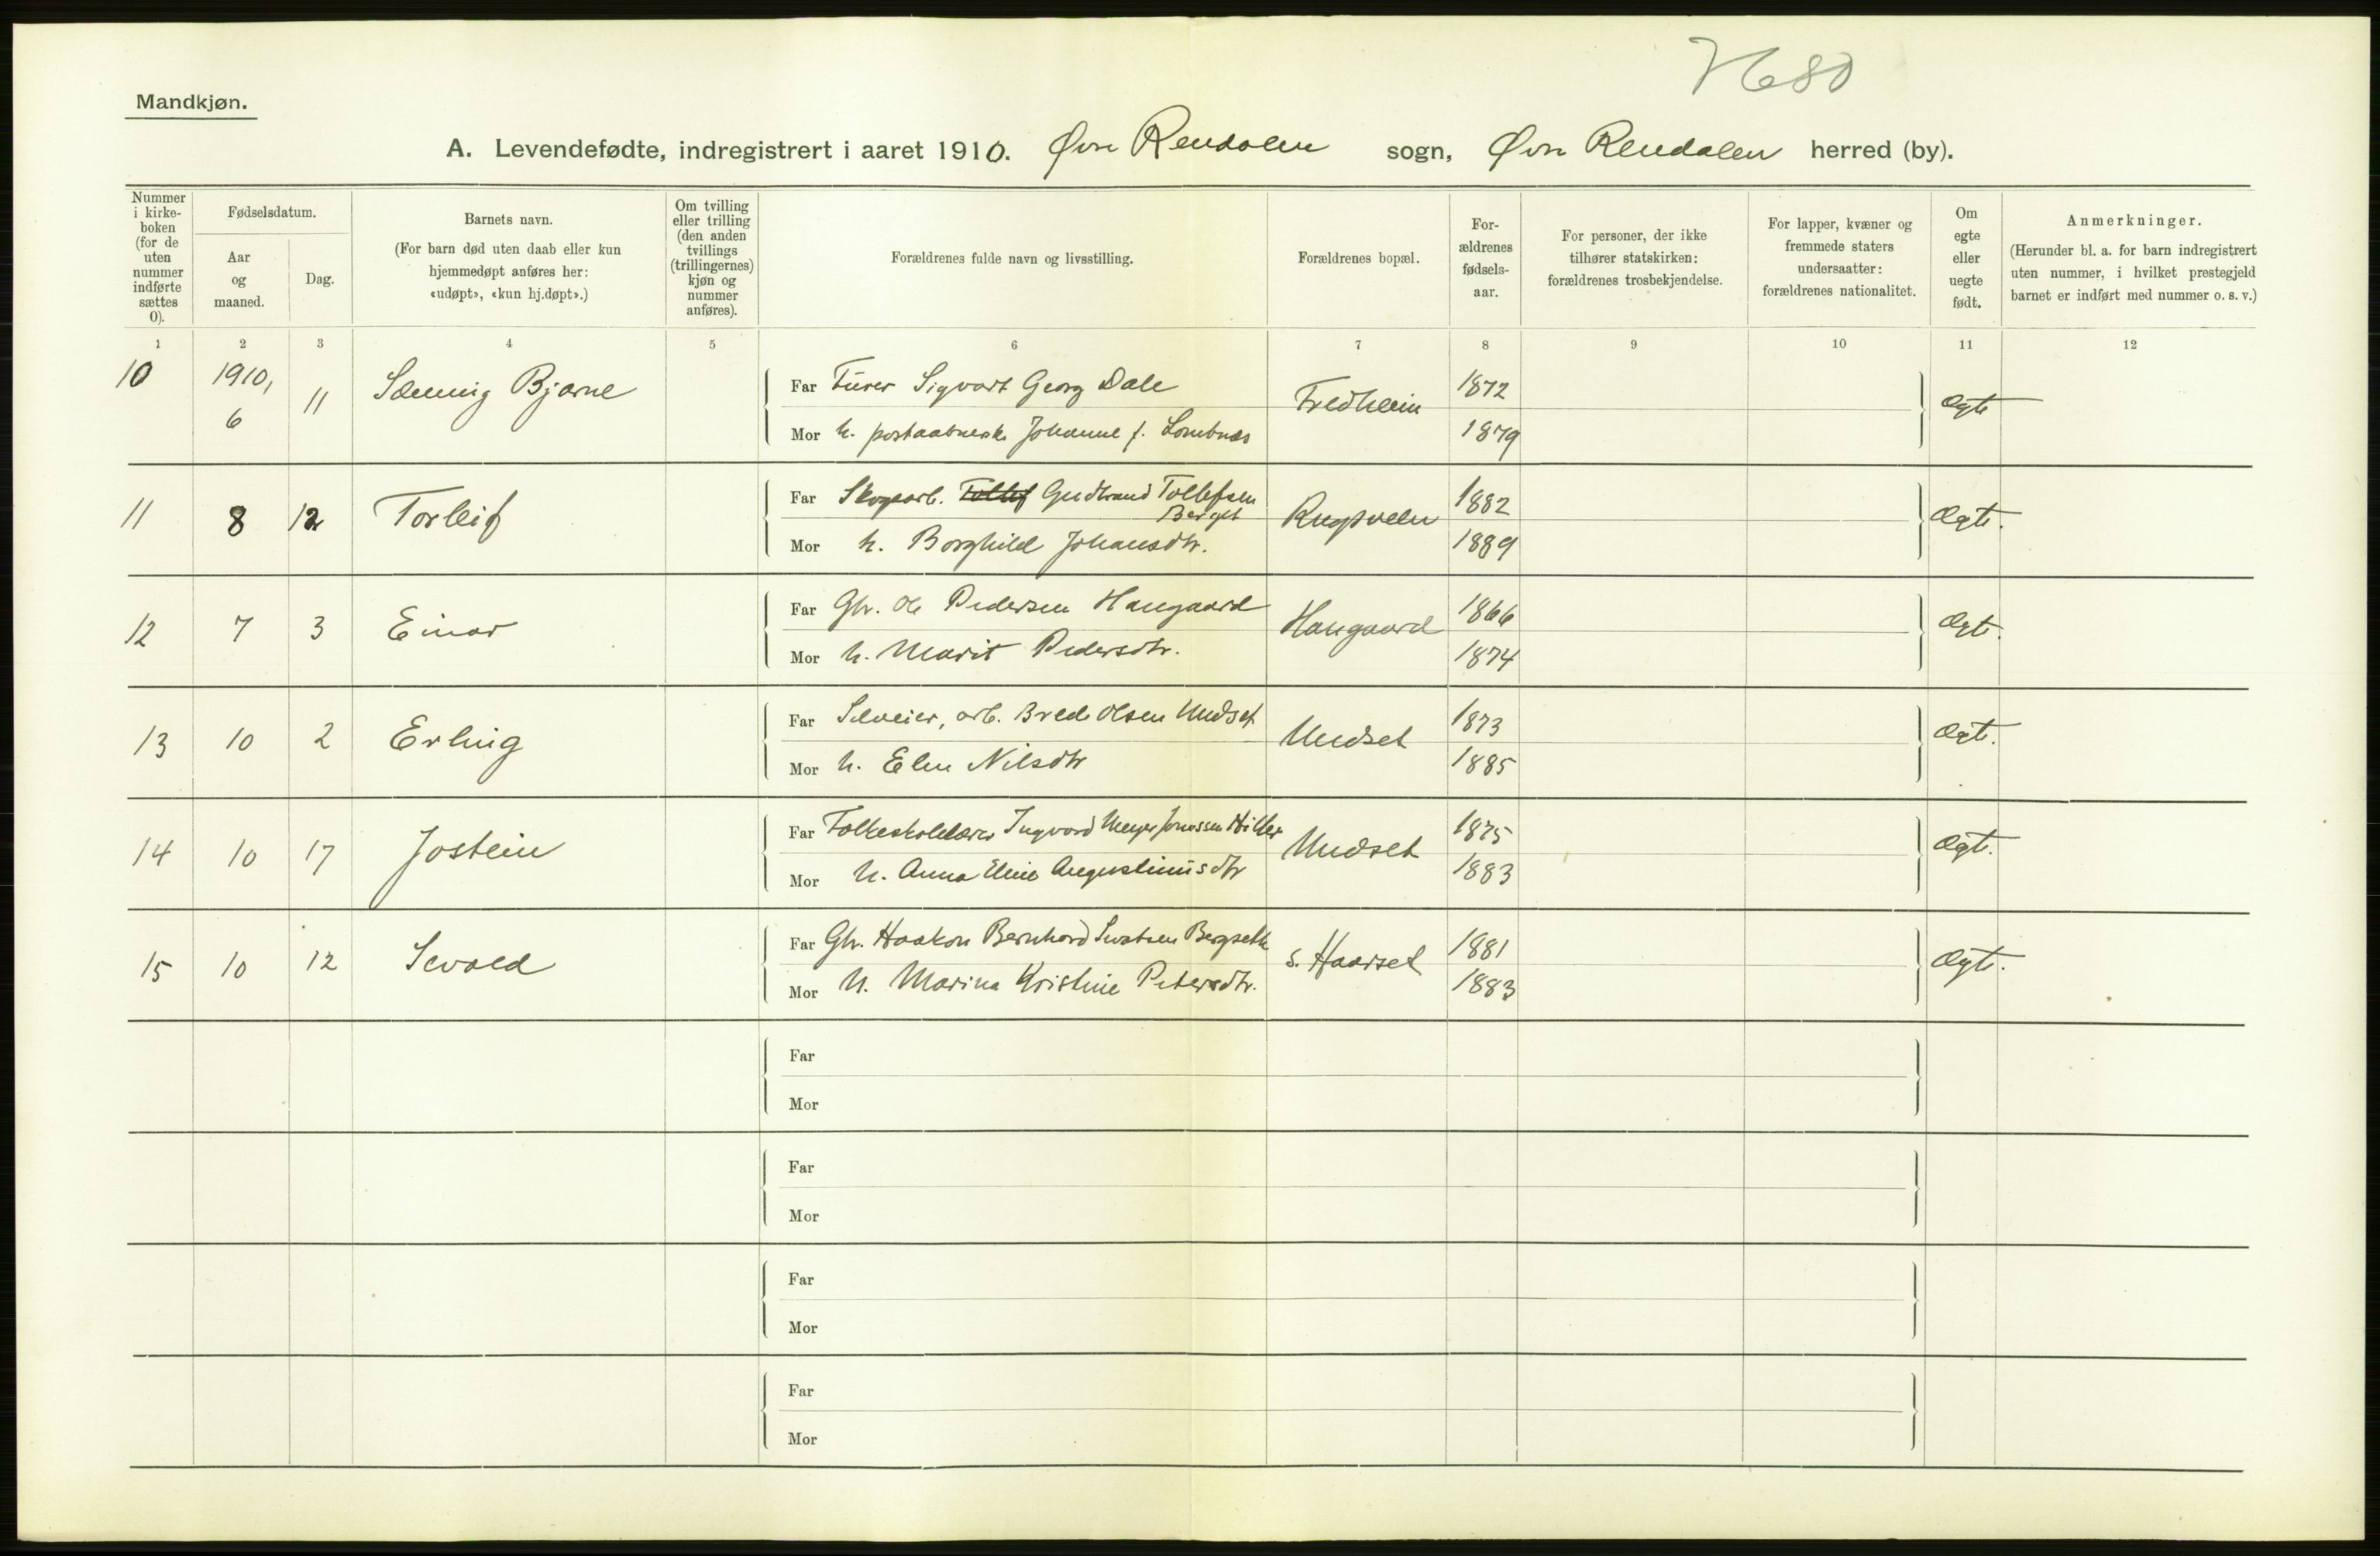 7680
Mandkjøn.
A. Levendefødte, indregistrert i aaret 1910. Øvre Rendalen sogn, Øvre Rendalen herred (by).
Nummer
i kirke-
boken
(for de
uten
nummer
indførte
sættes
0).
Fødselsdatum.
Aar
og
maaned.
Dag.
Barnets navn.
(For barn død uten daab eller kun
hjemmedøpt anføres her:
«udøpt», «kun hj.døpt».)
Om tvilling
eller trilling
(den anden
tvillings
(trillingernes)
kjøn og
nummer
anføres).
Forældrenes fulde navn og livsstilling.
Forældrenes bopæl.
For-
ældrenes
fødsels-
aar.
For personer, der ikke
tilhører statskirken:
forældrenes trosbekjendelse.
For lapper, kvæner og
fremmede staters
undersaatter:
forældrenes nationalitet.
Om
egte
eller
uegte
født.
Anmerkninger.
(Herunder bl. a. for barn indregistrert
uten nummer, i hvilket prestegjeld
barnet er indført med nummer o. s. v.)
1 2 3 4 5 6 7 8 9 10 11 12
10 1910, 6 11 Sæming Bjarne
Far Furer Sigvart Georg Dale
Mor h. postaabnerske Johanne f. Lombnæs
Fredheim 1872
1879
Ægte
11 8 12 Torleif
Far Skogsarb. Tollef Gudbrand Tollefsen
Berget
Mor h. Borghild Johansdtr.
Rugsveen 1882
1889
Ægte.
12 7 3 Einar
Far Gbr. Ole Pedersen Haugaard
Mor h. Marit Pedersdtr.
Haugaard 1866
1874
Ægte.
13 10 2 Erling
Far Selveier, arb. Brede Olsen Undset
Mor h. Elen Nilsdtr
Undset 1873
1885
Ægte.
14 10 17 Jostein
Far Folkeskolelærer Ingvard Meyer Jonassen Hitler
Mor h. Anna Eline Augustinusdtr
Undset 1875
1883
Ægte.
15 10 12 Sevald
Far Gbr. Haakon Bernhard Bergseth
Mor h. Marina Kristine Petersdtr.
S. Haarset 1881
1883
Ægte.
Far
Mor
Far
Mor
Far
Mor
Far
Mor